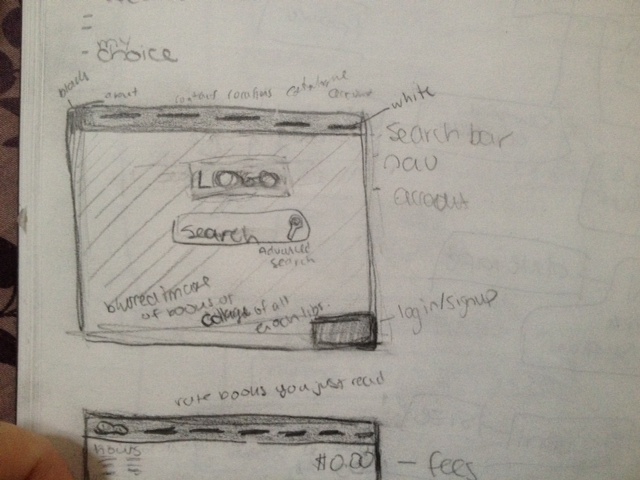 =
- my
choice
black
about
contact locations catalogue
account
white
search bar
nav
account
LOGO
Search
Advanced
search
blurred image
of books or
collage of all
login/signup
rate books you just read
Hours
$0.00
- fees